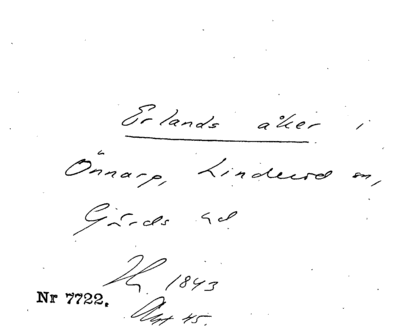 Erlands åker i
Önnarp, Linderöd sn,
Gärds hd
1843
Nr 7722.
Akt 45.